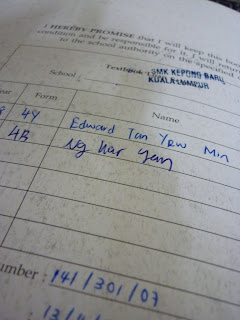 I HEREBY PROMISE that I will keep this
condition and be responsible for it. I will
to the school authority on the specified
Textbook
School
SMK KEPONG BARU
KUALA LUMPUR
Form Name
4Y Edward Tan Yew Min
4B Ng Kar Yan
umber : 141/301/07